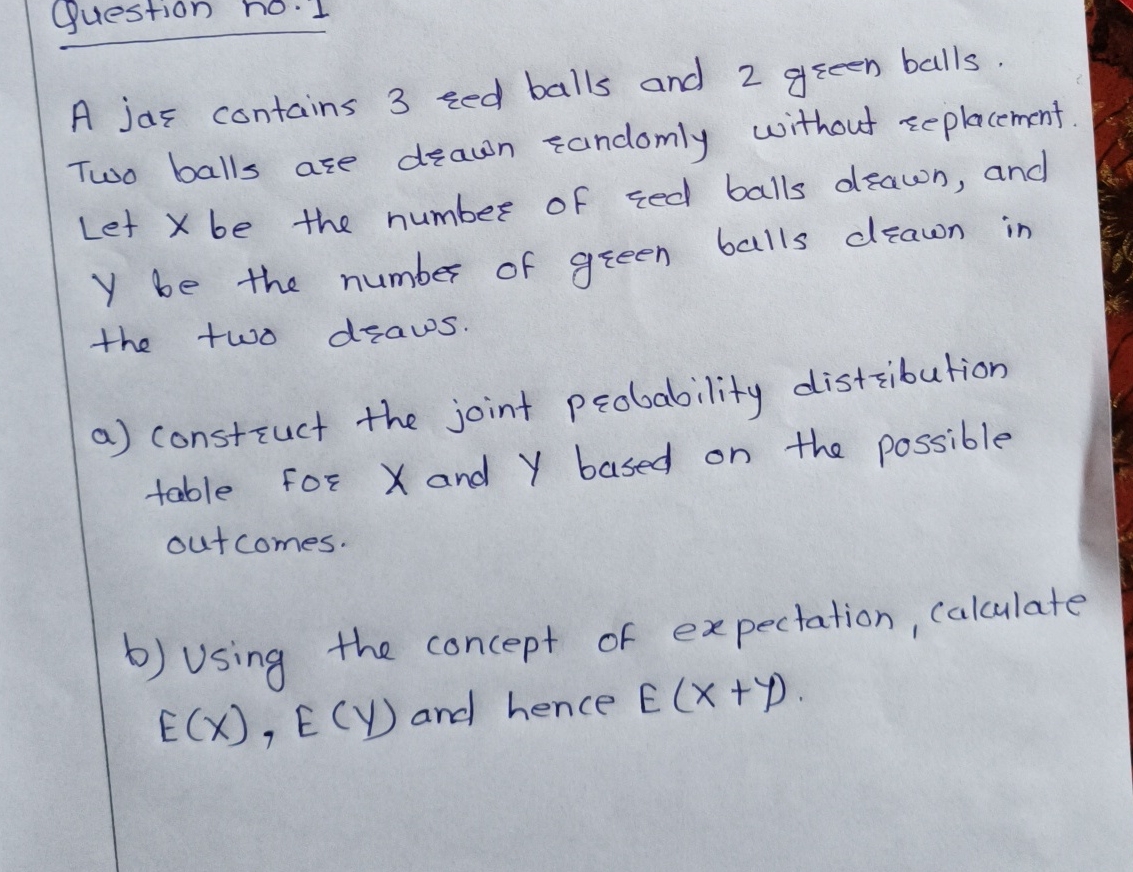 Question no. 1
A jar contains 3 red balls and 2 green balls.
Two balls are drawn randomly without replacement.
Let X be the number of red balls drawn, and
Y be the number of green balls drawn in
the two draws.
a) construct the joint probability distribution
table for X and Y based on the possible
outcomes.
b) Using the concept of expectation, calculate
E(X), E(Y) and hence E(X+Y).